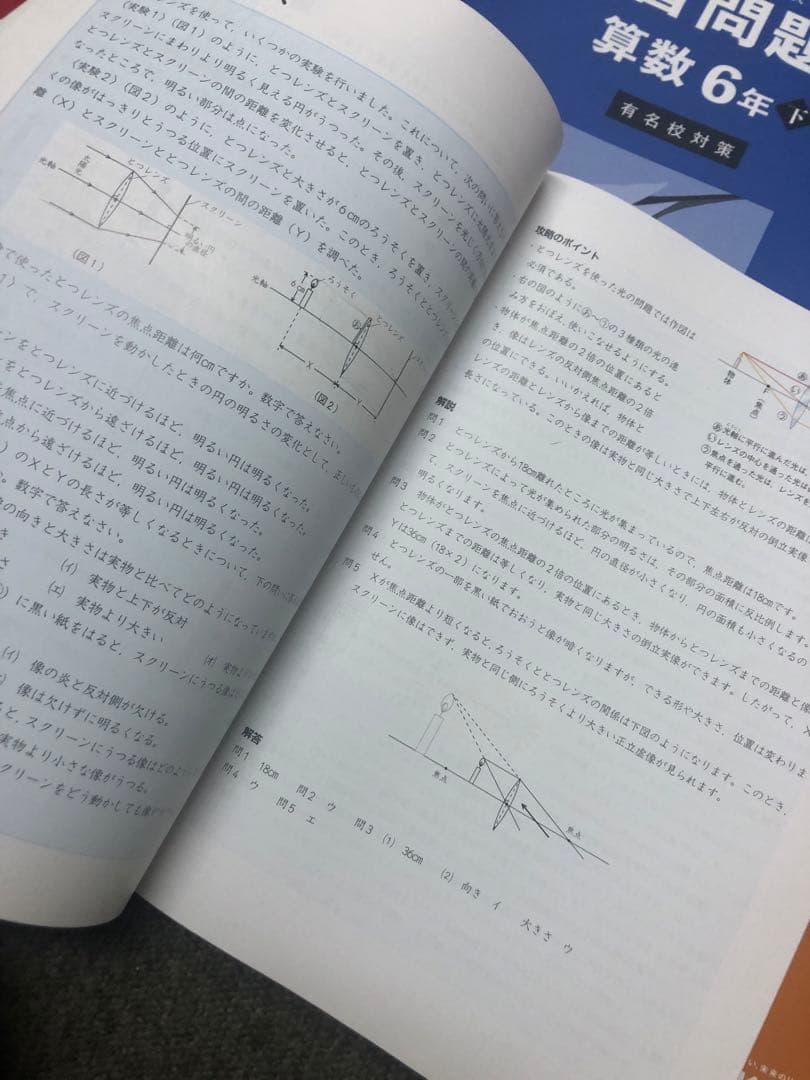 レンズを使って、いくつかの実験を行いました。これについて、次の問いに答え
(実験1)(図1)のように、とつレンズとスクリーンを置き、とつレンズに太陽光
スクリーンにまわりより明るく見える円がうつった。その後、スクリーンを光じく
とつレンズとスクリーンの間の距離を変化させると、とつレンズとスクリーンの間
なったところで、明るい部分は点になった。
(実験2)(図2)のように、とつレンズと大きさが6cmのろうそくを置き、スクリーン
くの像がはっきりとうつる位置にスクリーンを置いた。このとき、ろうそくととつレン
離(X)とスクリーンととつレンズの間の距離(Y)を調べた。
光軸
太陽光
とつレンズ
スクリーン
明るい円
の直径
(図1)
光軸
6cm
ろうそく
とつレンズ
X
Y
(図2)
で使ったとつレンズの焦点距離は何cmですか。数字で答えなさい。
1)で、スクリーンを動かしたときの円の明るさの変化として、正しい
ーンをとつレンズに近づけるほど、明るい円は明るくなった。
をとつレンズから遠ざけるほど、明るい円は明るくなった。
を焦点に近づけるほど、明るい円は明るくなった。
点から遠ざけるほど、明るい円は明るくなった。
)のXとYの長さが等しくなるときについて、下の問いに答え
。数字で答えなさい。
像の向きと大きさは実物と比べてどのようになっていますか
き
(イ) 実物と上下が反対
さ
(エ) 実物より大きい
(オ) 実物
)に黒い紙をはると、スクリーンにうつる像は
(イ) 像の炎と反対側が欠ける。
像は欠けずに明るくなる。
ると、スクリーンにうつる像はどのよう
実物より小さな像がうつる。
スクリーンをどう動かしても像が
習問題
算数6年 下
有名校対策
攻略のポイント
・とつレンズを使った光の問題では作図は
必須である。
・右の図のようにあ〜うの3種類の光の進
み方をおぼえ、使いこなせるようにする。
・物体が焦点距離の2倍の位置にあると
き、像はレンズの反対側焦点距離の2倍
の位置にできる。いいかえれば、物体と
レンズの距離とレンズから像までの距離が等しいときには、物体とレンズの距離は
長さになっている。このときの像は実物と同じ大きさで上下左右が反対の倒立実像
物体
(焦点)
あ光軸に平行に進んだ光は
いレンズの中心を通った光は
う焦点を通った光は、レンズ
平行に進む。
解説
問1 とつレンズから18cm離れたところに光が集まっているので、焦点距離は18cmです。
問2 とつレンズによって光が集められた部分の明るさは、その部分の面積に反比例します。
て、スクリーンを焦点に近づけるほど、円の直径が小さくなり、円の面積も小さくなるの
明るくなります。
問3 物体がとつレンズの焦点距離の2倍の位置にあるとき、物体からとつレンズまでの距離と像
とつレンズまでの距離は等しくなり、実物と同じ大きさの倒立実像ができます。したがって、X
Yは36cm(18×2)になります。
問4 とつレンズの一部を黒い紙でおおうと像が暗くなりますが、できる形や大きさ、位置は変わりま
せん。
問5 Xが焦点距離より短くなると、ろうそくととつレンズの関係は下図のようになります。このとき、
スクリーンに像はできず、実物と同じ側にろうそくより大きい正立虚像が見られます。
焦点
焦点
解答
問1 18cm 問2 ウ 問3 (1) 36cm (2) 向き イ 大きさ ウ
問4 ウ 問5 エ